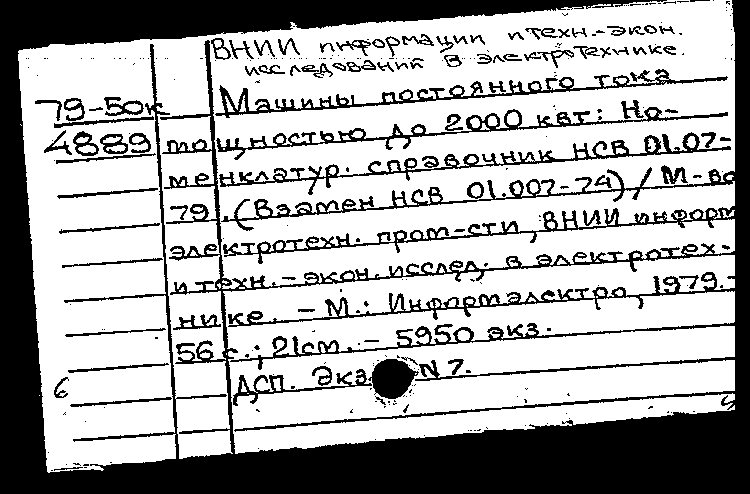 ВНИИ информации и техн.-экон.
исследований в электротехнике.
79-50к Машины постоянного тока
4889 мощностью до 2000 квт: Но-
менклатур. справочник НСВ 01.07-
79. (Взамен НСВ 01.007-74) / М-во
электротехн. пром-сти, ВНИИ информ
и техн.-экон. исслед. в электротех-
нике. - М.: Информэлектро, 1979.-
56 с.; 21см. - 5950 экз.
6 ДСП. Экз N 7.